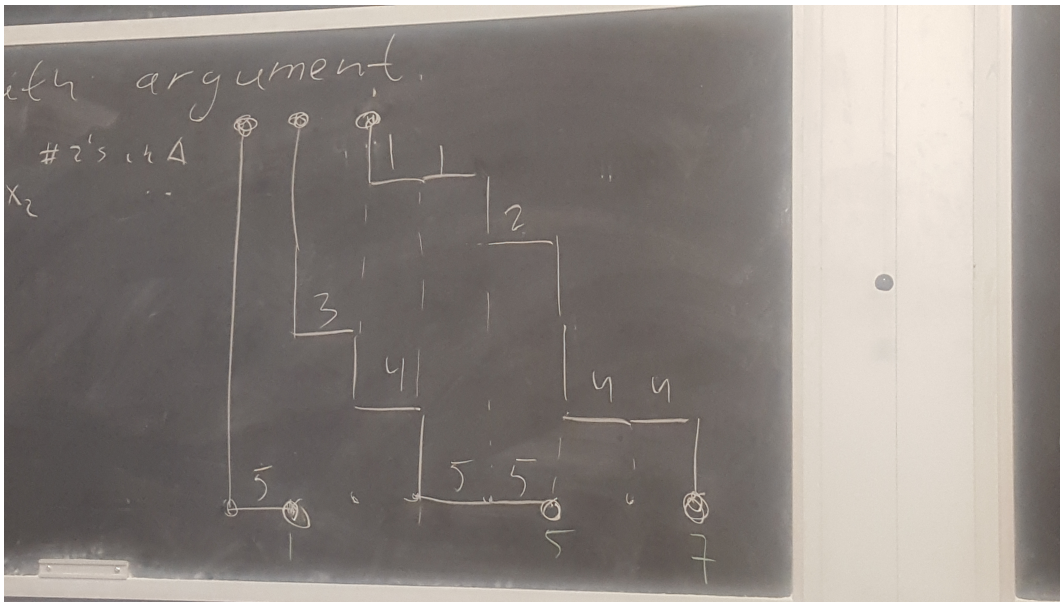 argument.
# 2's in Δ
x₂
1 1
2
3
4
4 4
5 5
5
1 5 7